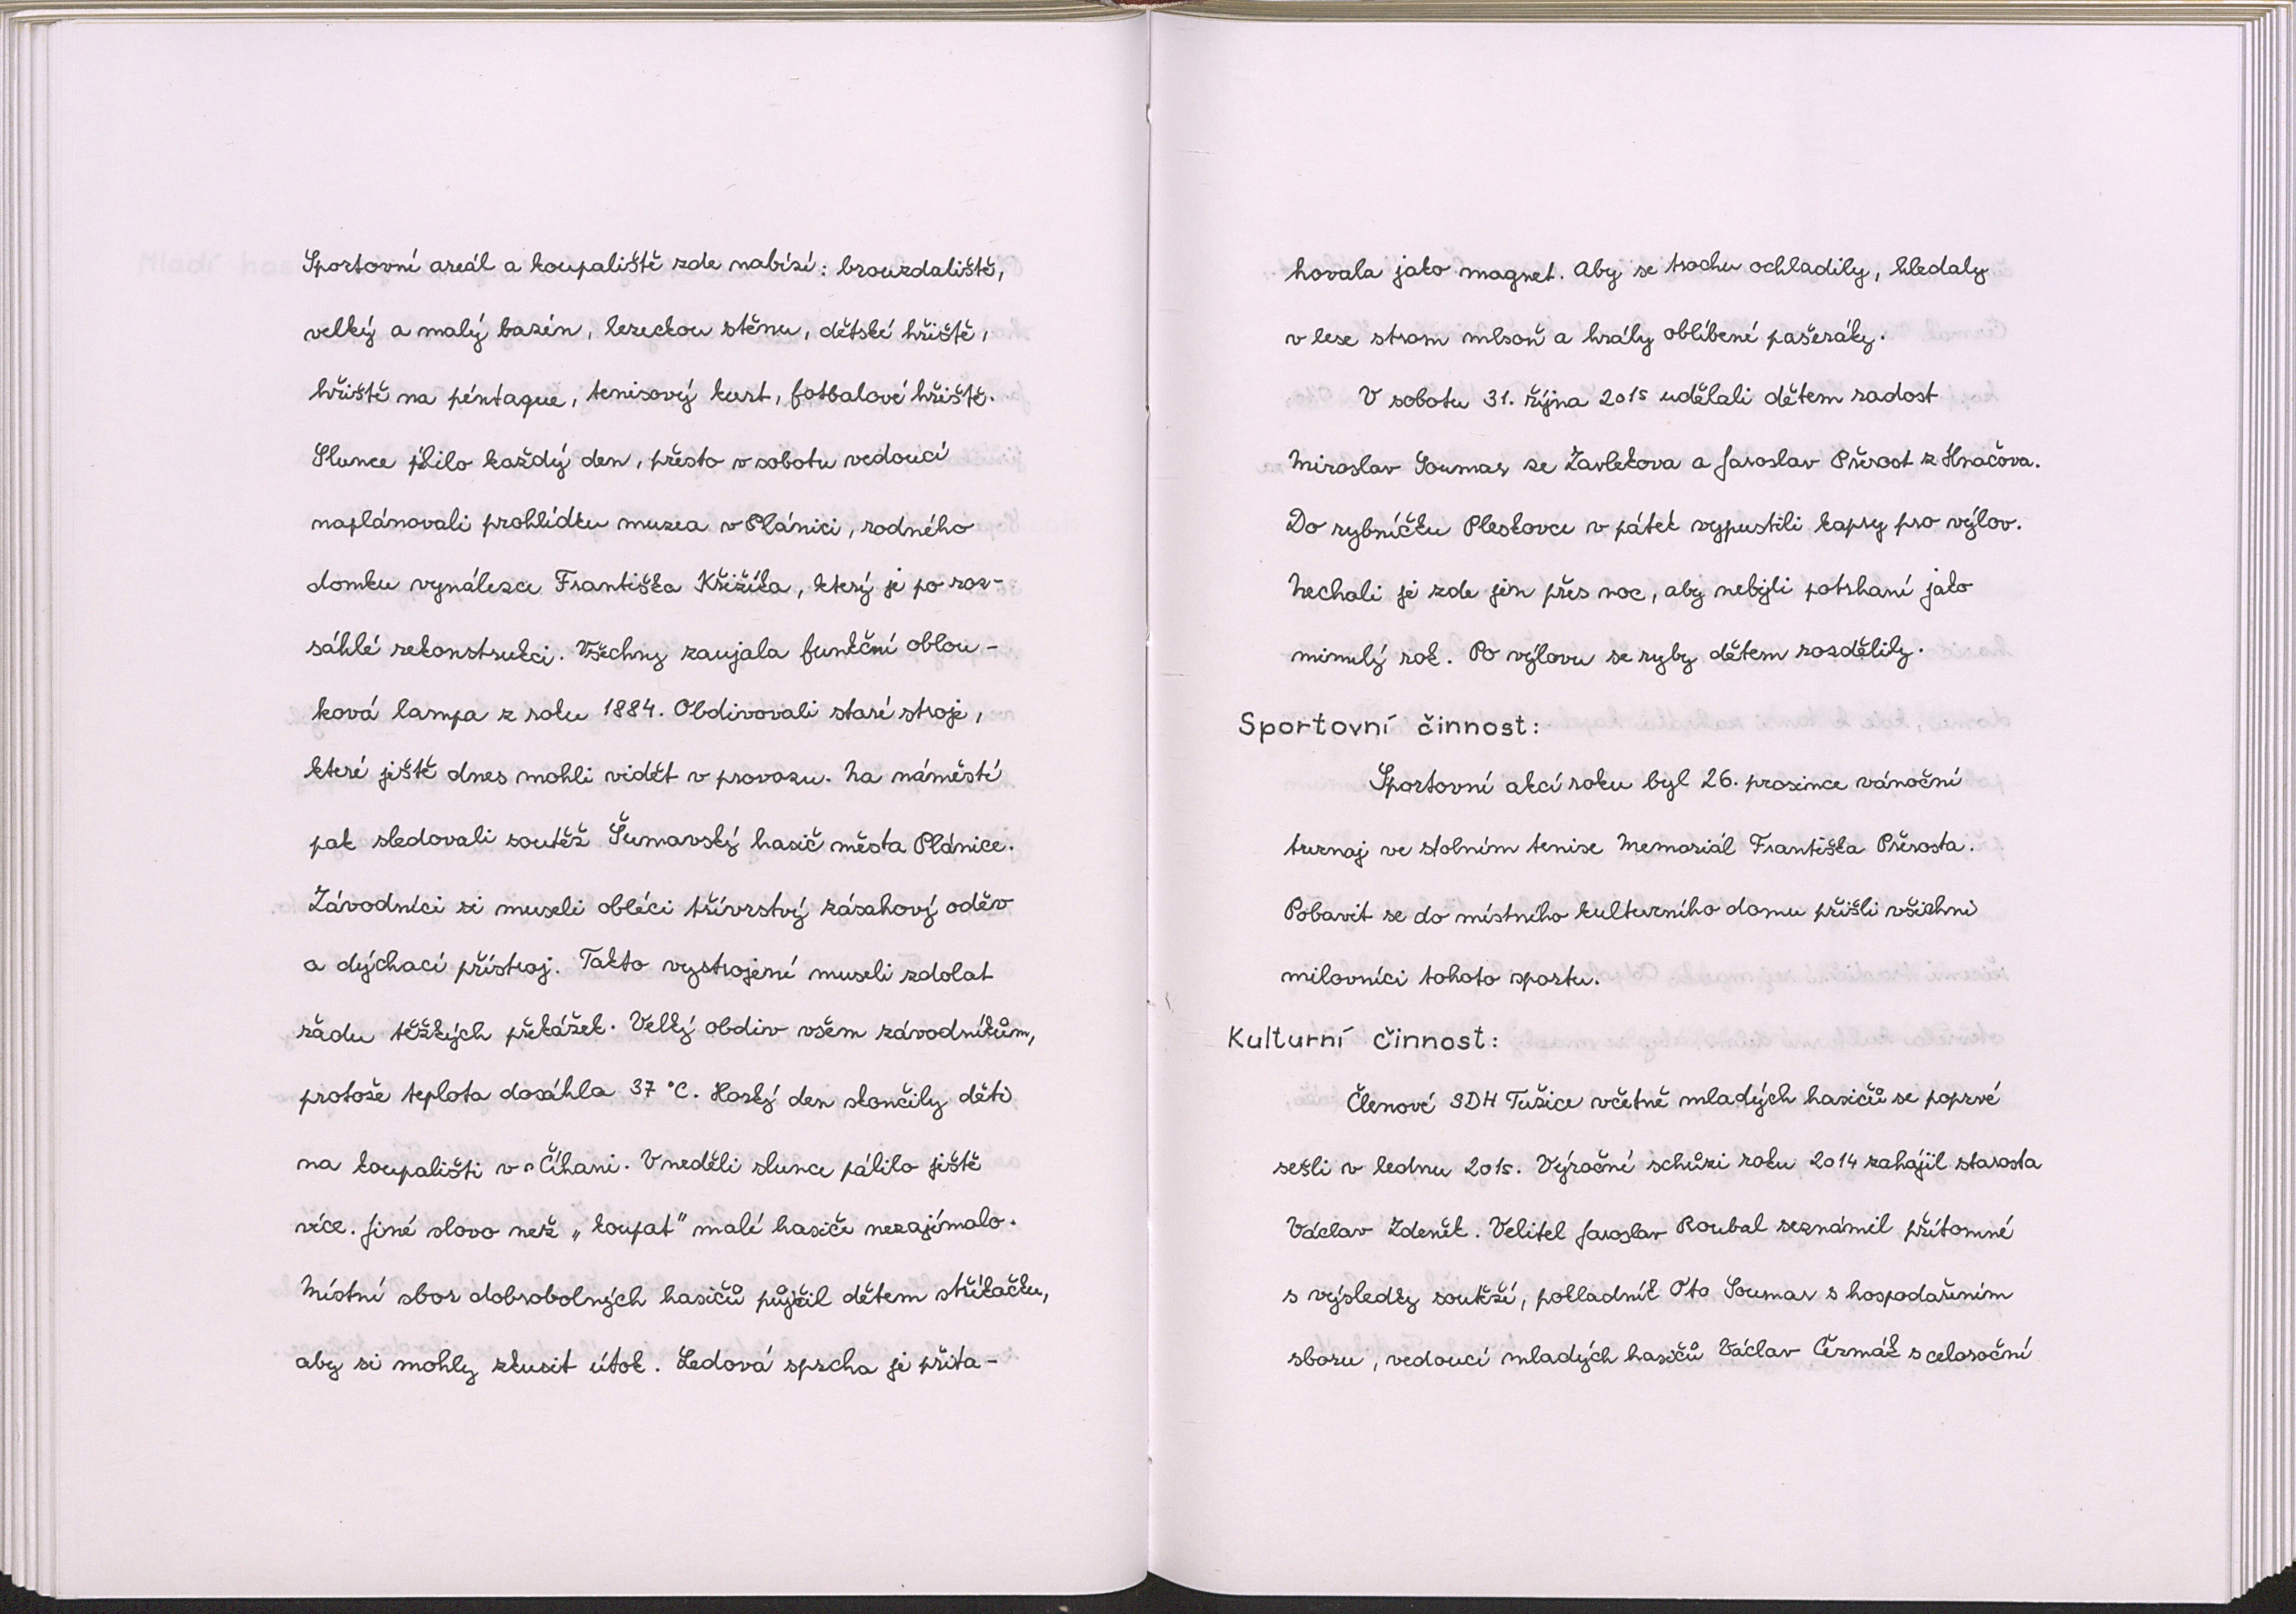 Sportovní areál a koupaliště zde nabízí: brouzdaliště,
velký a malý bazén, lezeckou stěnu, dětské hřiště,
hřiště na péntaque, tenisový kurt, fotbalové hřiště.
Slunce pálilo každý den, přesto v sobotu vedoucí
naplánovali prohlídku muzea v Plánici, rodného
domku vynálezce Františka Křižíka, který je po roz-
sáhlé rekonstrukci. Všechny zaujala funkční oblou-
ková lampa z roku 1884. Obdivovali staré stroje,
které ještě dnes mohli vidět v provozu. Na náměstí
pak sledovali soutěž Šumavský hasič města Plánice.
Závodníci si museli obléci třívrstvý zásahový oděv
a dýchací přístroj. Takto vystrojení museli zdolat
řadu těžkých překážek. Velký obdiv všem závodníkům,
protože teplota dosáhla 37 °C. Horký den skončily děti
na koupališti v Číhani. V neděli slunce pálilo ještě
více. Jiné slovo než „koupat" malé hasiče nezajímalo.
Místní sbor dobrobolných hasičů půjčil dětem stříkačku,
aby si mohly zkusit útok. Ledová sprcha je přita-
hovala jako magnet. Aby se trochu ochladily, hledaly
v lese strom mlsoň a hrály oblíbené pašeráky.
V sobotu 31. října 2015 udělali dětem radost
Miroslav Soumar ze Zavlekova a Jaroslav Přerost z Hnačova.
Do rybníčku Pleskovce v pátek vypustili kapry pro výlov.
Nechali je zde jen přes noc, aby nebyli potrhaní jako
minulý rok. Po výlovu se ryby dětem rozdělily.
Sportovní činnost:
Sportovní akcí roku byl 26. prosince vánoční
turnaj ve stolním tenise Memoriál Františka Přerosta.
Pobavit se do místního kulturního domu přišli všichni
milovníci tohoto sportu.
Kulturní činnost:
Členové SDH Tužice včetně mladých hasičů se poprvé
sešli v lednu 2015. Výroční schůzi roku 2014 zahájil starosta
Václav Zdeněk. Velitel Jaroslav Roubal seznámil přítomné
s výsledky soutěží, pokladník Oto Soumar s hospodařením
sboru, vedoucí mladých hasičů Václav Čermák s celoroční